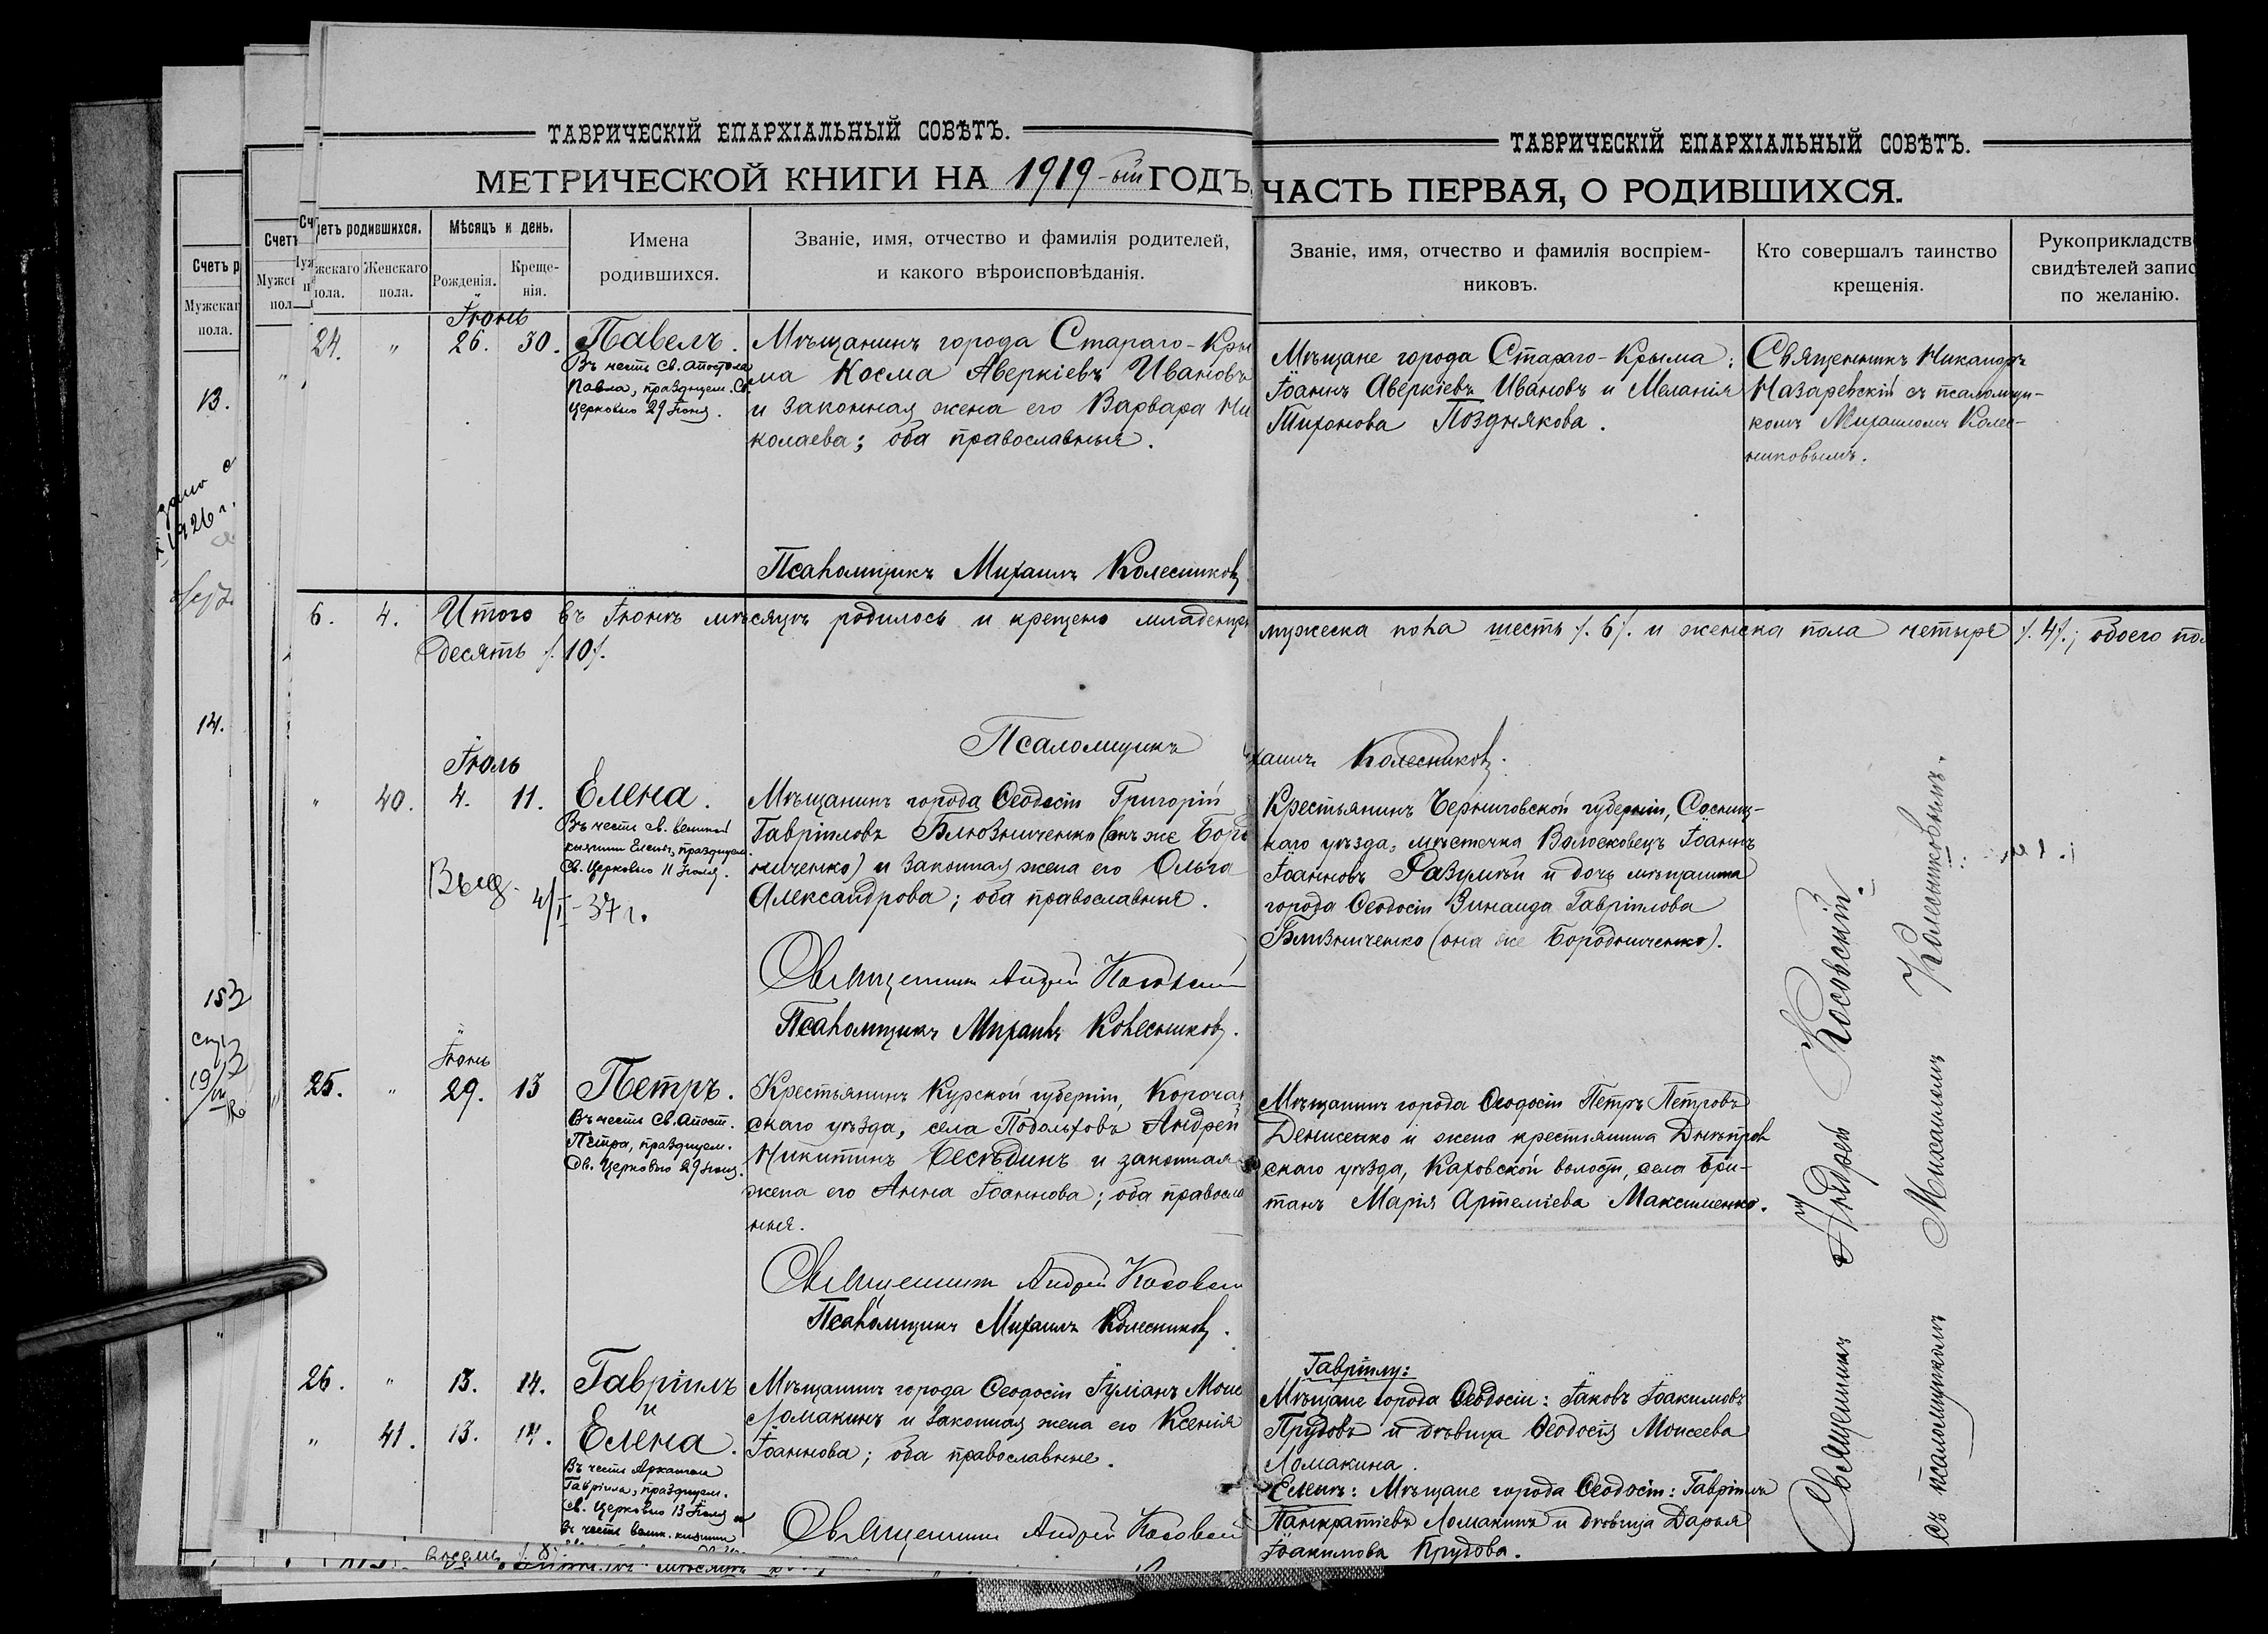 ТАВРИЧЕСКІЙ ЕПАРХІАЛЬНЫЙ СОВѢТЪ.
МЕТРИЧЕСКОЙ КНИГИ НА 1919-ый ГОДЪ,
Счетъ р
Мужскаг
пола.
13.
1926 г.
14.
153
Счет
Мужс
пол
етъ родившихся.
жскаго
пола.
Женскаго
пола.
Мѣсяцъ и день.
Рожденія.
Креще-
нія.
Имена
родившихся.
Званіе, имя, отчество и фамилія родителей,
и какого вѣроисповѣданія.
Іюнь
24. " 26. 30.
Павелъ.
Въ честь Св. Апостола
Павла, празднуем. Св.
Церковью 29 Іюня.
Мѣщанинъ города Стараго-Кры
ма Косма Аверкіевъ Ивановъ
и законная жена его Варвара Ни
колаева; оба православные.
Псаломщикъ Михаилъ Колесниковъ
6. 4. Итого въ Іюнѣ мѣсяцѣ родилось и крещено младенцевъ
десять /.10/.
Псаломщикъ
Іюль
" 40. 4. 11.
Елена.
Въ честь св. великой
княгини Елены, празднуем.
Св. Церковью 11 Іюля.
Выд. 4/I-37 г.
Мѣщанинъ города Ѳеодосіи Григорій
Гавріиловъ Близниченко (онъ же Боро
ниченко) и законная жена его Ольга
Александрова; оба православные.
Священникъ Андрей Косовскій
Псаломщикъ Михаилъ Колесниковъ.
Іюнь
25. " 29. 13
Петръ.
Въ честь Св. Апост.
Петра, празднуем.
Св. Церковью 29 Іюня.
Крестьянинъ Курской губерніи, Короча
скаго уѣзда, села Подольховъ Андрей
Никитинъ Бесѣдинъ и законная
жена его Анна Іоаннова; оба правосла
ные.
Священникъ Андрей Косовскій
Псаломщикъ Михаилъ Колесниковъ.
26. " 13. 14.
Гавріилъ
и
" 41. 13. 14.
Елена.
Въ честь Архангела
Гавріила, празднуем.
Св. Церковью 13 Іюля и
въ честь велик. княгини
Мѣщанинъ города Ѳеодосіи Іуліанъ Моис
Ломакинъ и законная жена его Ксенія
Іоаннова; оба православные.
Священникъ Андрей Косовскій
ТАВРИЧЕСКІЙ ЕПАРХІАЛЬНЫЙ СОВѢТЪ.
ЧАСТЬ ПЕРВАЯ, О РОДИВШИХСЯ.
Званіе, имя, отчество и фамилія воспріем-
никовъ.
Кто совершалъ таинство
крещенія.
Рукоприкладств
свидѣтелей запис
по желанію.
Мѣщане города Стараго-Крыма:
Іоаннъ Аверкіевъ Ивановъ и Меланія
Тихонова Позднякова.
Священникъ Никаноръ
Назаревскій съ псаломщи-
комъ Михаиломъ Колес-
никовымъ.
мужеска пола шесть /.6/. и женска пола четыре /.4/.; обоего по
хаилъ Колесниковъ.
Крестьянинъ Черниговской губерніи, Сосниц-
каго уѣзда, мѣстечка Волосковецъ Іоаннъ
Іоанновъ Разумѣй и дочь мѣщанина
города Ѳеодосіи Зинаида Гавріилова
Близниченко (она же Бородниченко).
Мѣщанинъ города Ѳеодосіи Петръ Петровъ
Денисенко и жена крестьянина Днѣпров
скаго уѣзда, Каховской волости, села Бри-
танъ Марія Артеміева Максименко.
Гавріилу:
Мѣщане города Ѳеодосіи: Іаковъ Іоакимовъ
Прудовъ и дѣвица Ѳеодосія Моисеева
Ломакина.
Еленѣ: Мѣщане города Ѳеодосіи: Гавріилъ
Панкратіевъ Ломакинъ и дѣвица Дарья
Іоакимова Прудова.
Священникъ Андрей Косовскій
съ псаломщикомъ Михаиломъ Колесниковымъ.